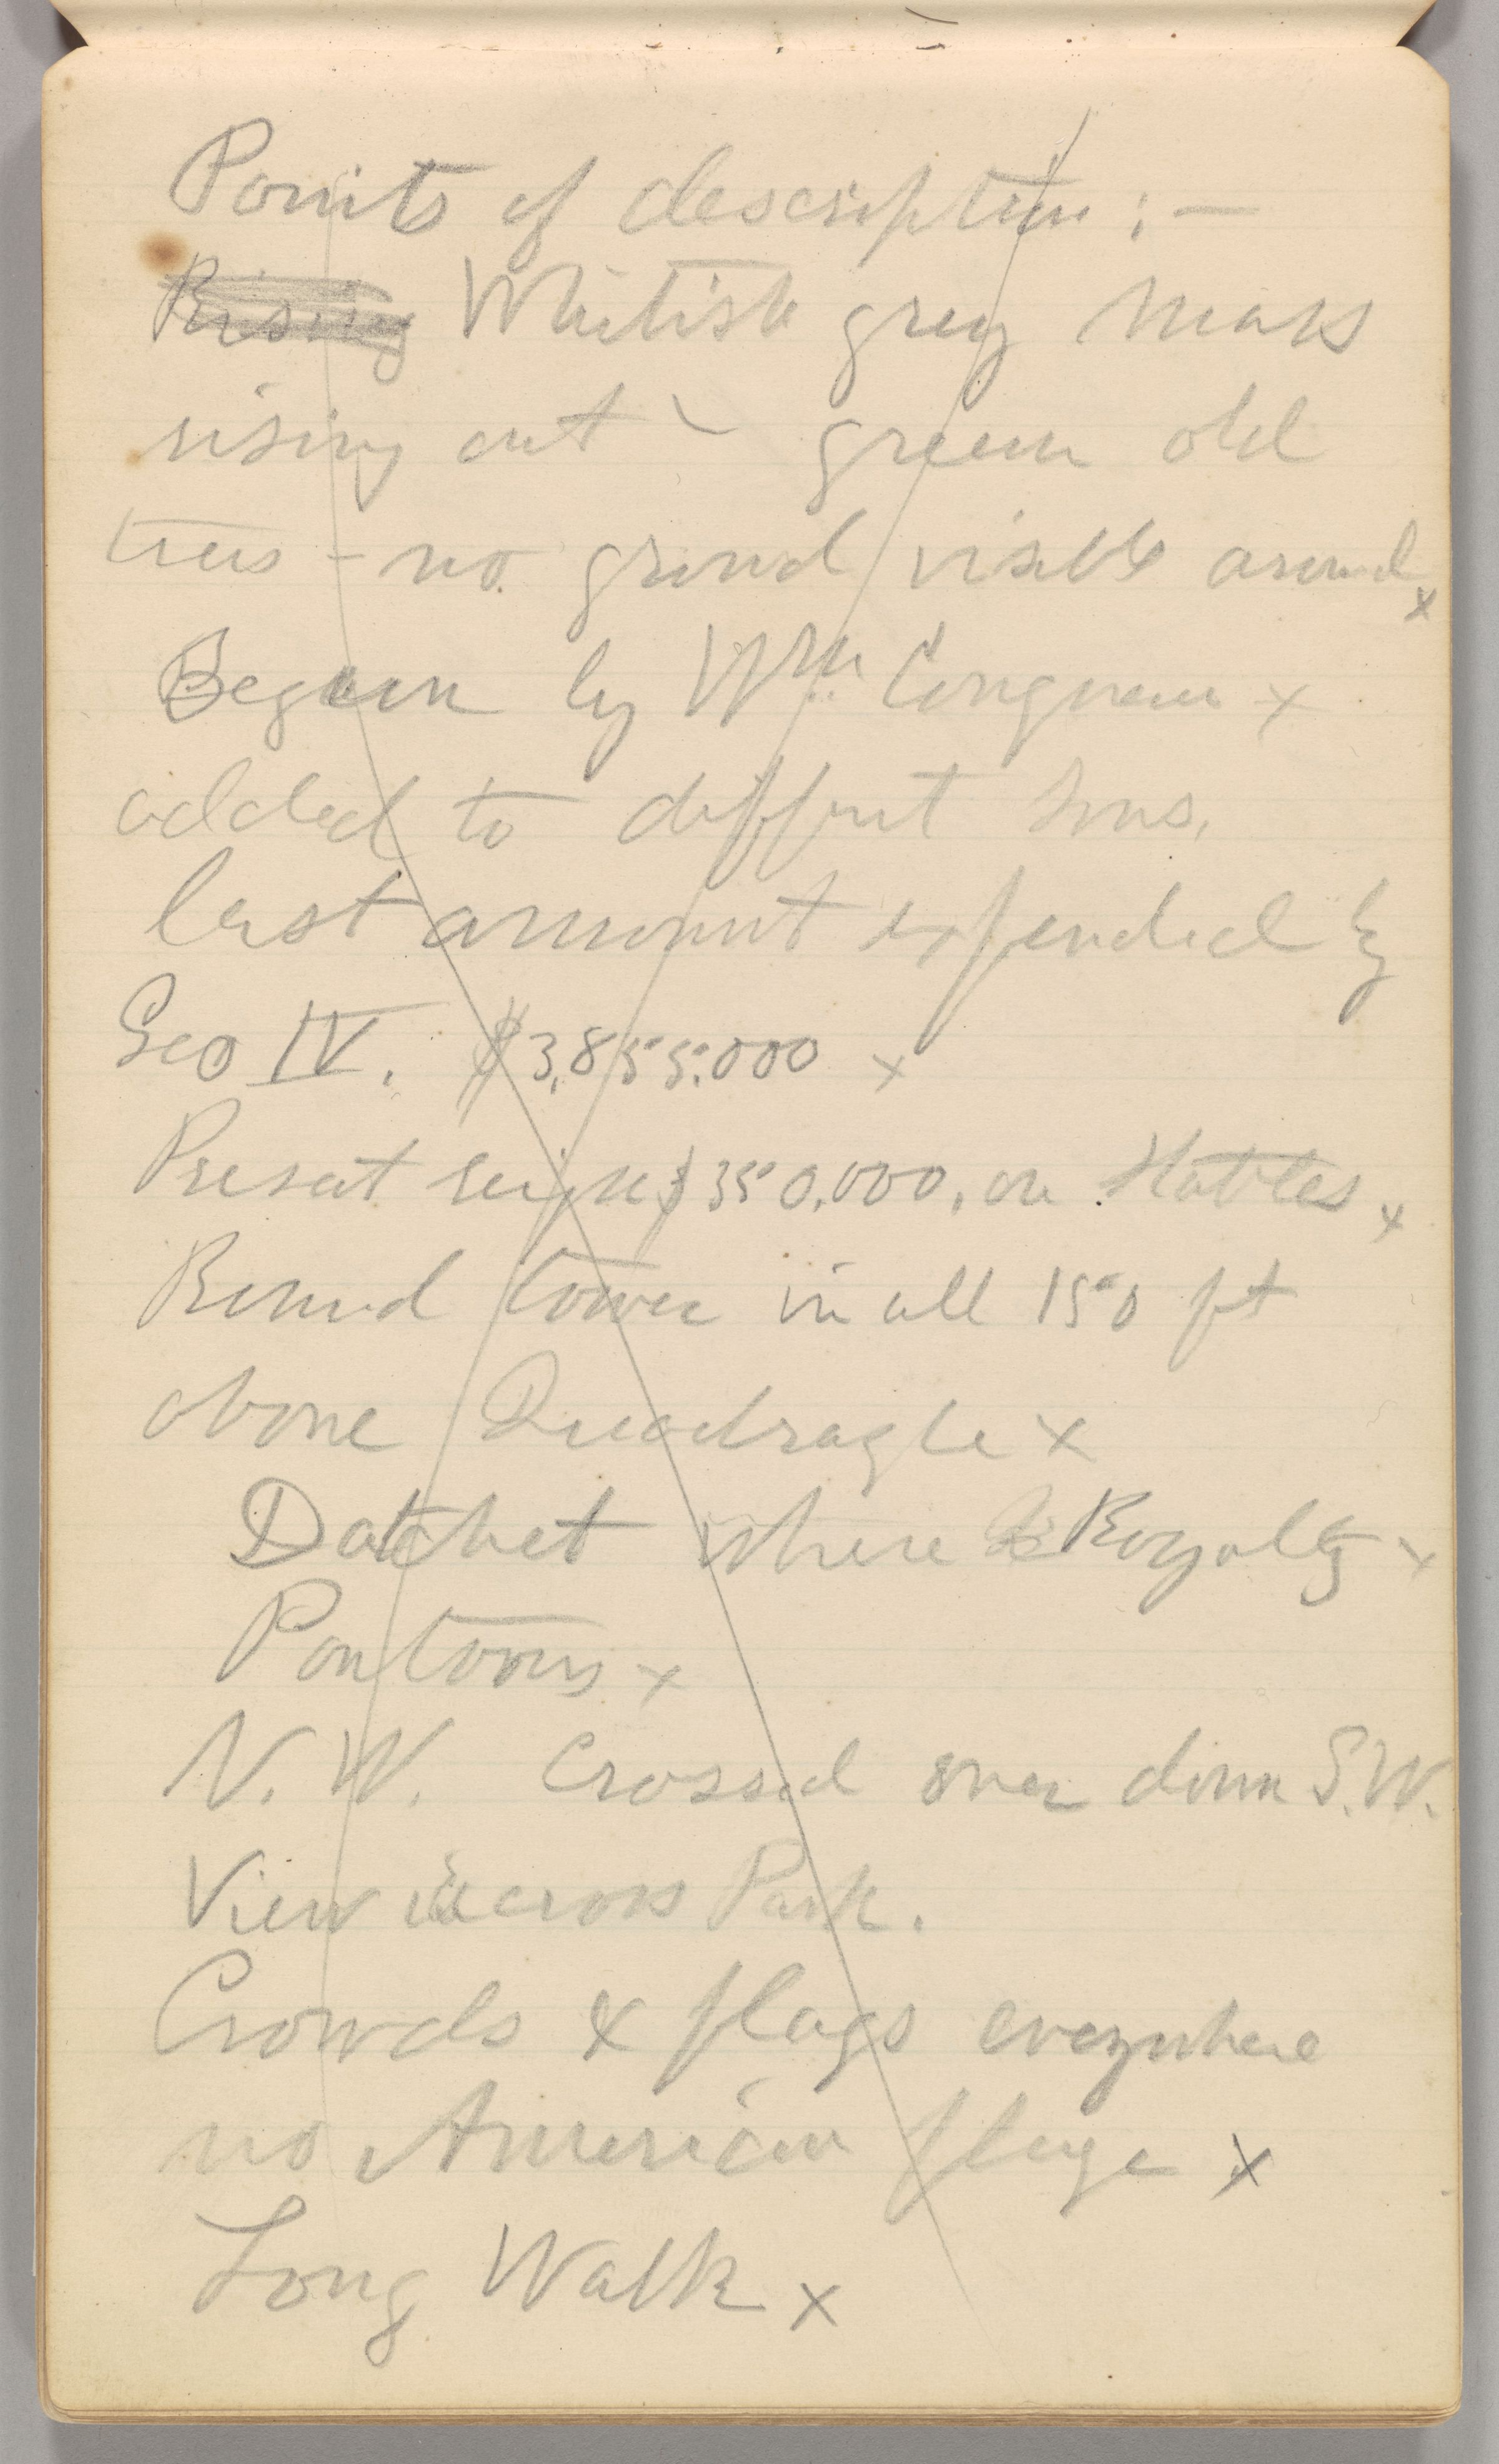 Points of description :—
Rising Whitish grey mass
rising out ~ green old
trees - no ground visible around x
Begun by Wm Conqueror x
added to different times.
last amount expended by
Geo IV. $3,855,000 x
Present reign $350,000, on Stables x
Round tower in all 150 ft
above Quadrangle x
Datchet where Royalty x
Pontoons x
N. W. Crossed over down S.W.
View across Park.
Crowds & flags everywhere
no American flags x
Long Walk x